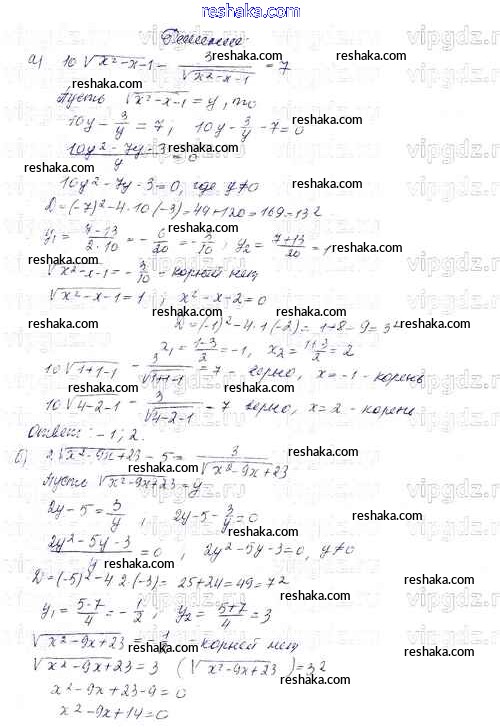 reshaka.com
Решение
а) 10√(x²-x-1) - 3/√(x²-x-1) = 7
Пусть √(x²-x-1) = y, то
10y - 3/y = 7; 10y - 3/y - 7 = 0
(10y² - 7y - 3)/y = 0
10y² - 7y - 3 = 0, где y ≠ 0
D = (-7)² - 4·10(-3) = 49 + 120 = 169 = 13²
y₁ = (7-13)/(2·10) = -6/20 = -3/10, y₂ = (7+13)/20 = 1
√(x²-x-1) = -3/10 - корней нет
√(x²-x-1) = 1; x² - x - 2 = 0
D = (-1)² - 4·1(-2) = 1+8 = 9 = 3²
x₁ = (1-3)/2 = -1, x₂ = (1+3)/2 = 2
10√(1+1-1) - 3/√(1+1-1) = 7 - верно, x = -1 - корень
10√(4-2-1) - 3/√(4-2-1) = 7 верно, x = 2 - корень
Ответ: -1; 2.
б) 2√(x²-9x+23) - 5 = 3/√(x²-9x+23)
Пусть √(x²-9x+23) = y
2y - 5 = 3/y, 2y - 5 - 3/y = 0
(2y² - 5y - 3)/y = 0, 2y² - 5y - 3 = 0, y ≠ 0
D = (-5)² - 4·2(-3) = 25 + 24 = 49 = 7²
y₁ = (5-7)/4 = -1/2, y₂ = (5+7)/4 = 3
√(x²-9x+23) = -1/2 - корней нет
√(x²-9x+23) = 3 (√(x²-9x+23)) = 3²
x² - 9x + 23 - 9 = 0
x² - 9x + 14 = 0